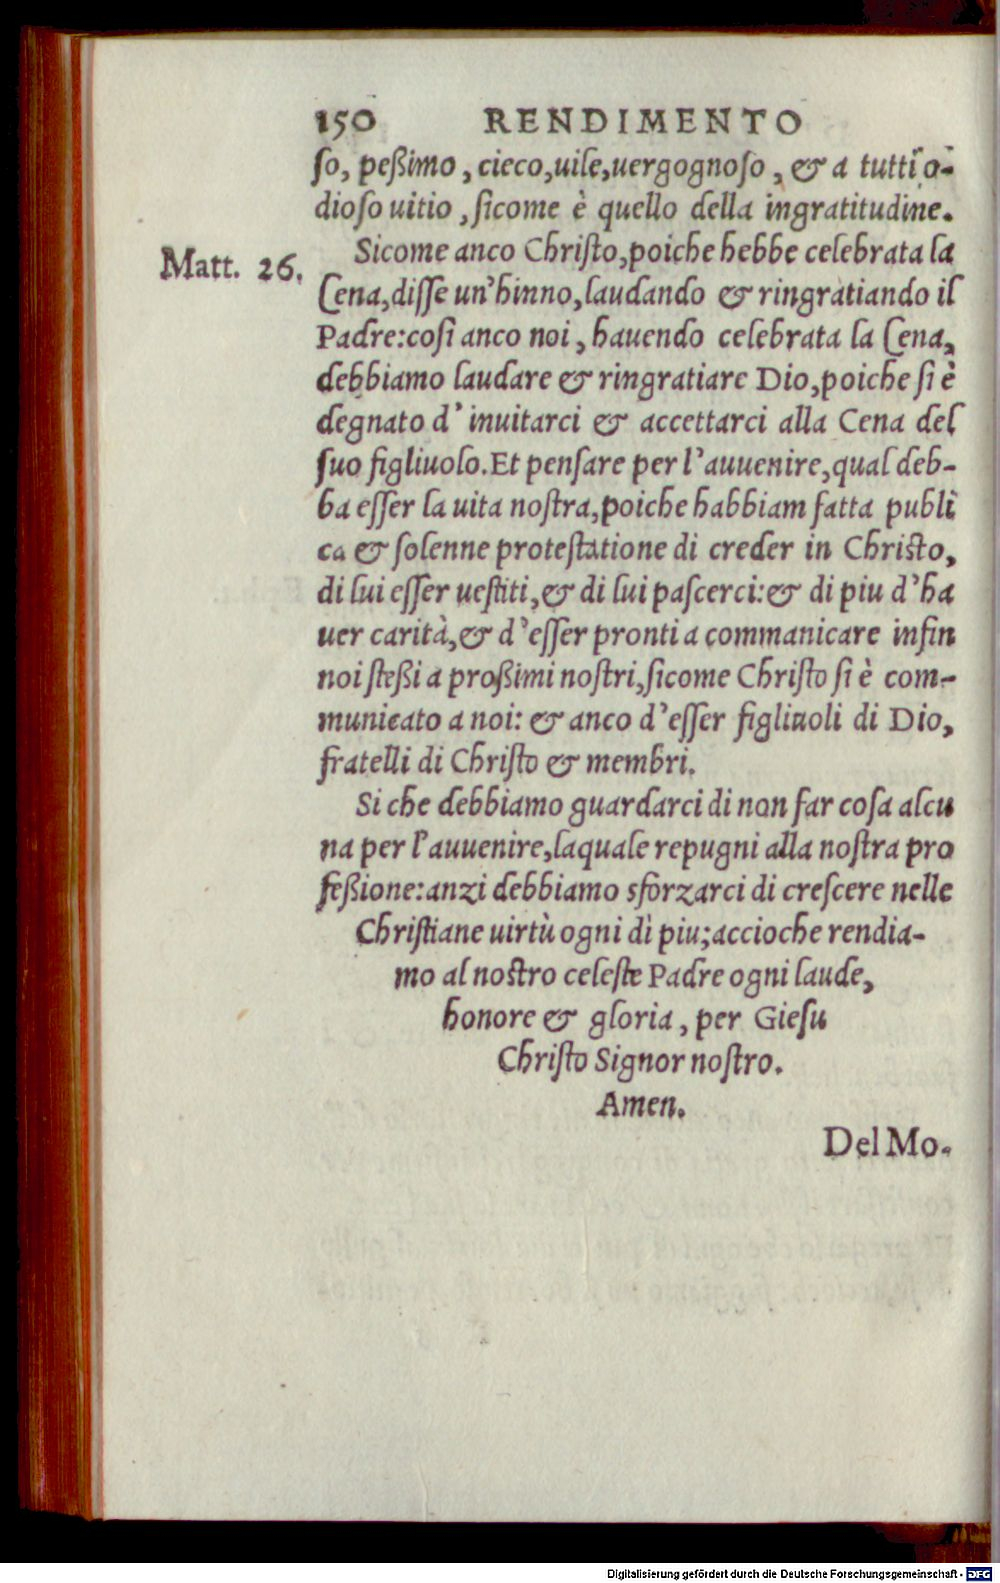 150 RENDIMENTO
ſo, peßimo, cieco, uile, uergognoſo, & a tutti o-
dioſo uitio, ſicome è quello della ingratitudine.
Matt. 26.
Sicome anco Chriſto, poiche hebbe celebrata la
Cena, diſſe un'hinno, laudando & ringratiando il
Padre: coſi anco noi, hauendo celebrata la Cena,
debbiamo laudare & ringratiare Dio, poiche ſi è
degnato d' inuitarci & accettarci alla Cena del
ſuo figliuolo. Et penſare per l'auuenire, qual deb-
ba eſſer la uita noſtra, poiche habbiam fatta publi
ca & ſolenne proteſtatione di creder in Chriſto,
di lui eſſer ueſtiti, & di lui paſcerci: & di piu d'ha
uer carità, & d'eſſer pronti a commanicare infin
noi ſteßi a proßimi noſtri, ſicome Chriſto ſi è com-
municato a noi: & anco d'eſſer figliuoli di Dio,
fratelli di Chriſto & membri.
Si che debbiamo guardarci di non far coſa alcu
na per l'auuenire, laquale repugni alla noſtra pro
feßione: anzi debbiamo sforzarci di creſcere nelle
Chriſtiane uirtù ogni dì piu; accioche rendia-
mo al noſtro celeſte Padre ogni laude,
honore & gloria, per Gieſu
Chriſto Signor noſtro.
Amen.
Del Mo-
Digitalisierung gefördert durch die Deutsche Forschungsgemeinschaft - DFG